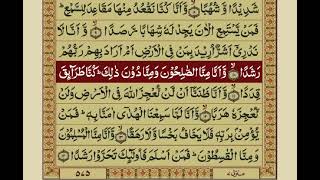 شَدِيْدًا وَّشُهُبًا ۙ وَّاَنَّا كُنَّا نَقْعُدُ مِنْهَا مَقَاعِدَ لِلسَّمْعِ ؕ
فَمَنْ يَّسْتَمِعِ الْاٰنَ يَجِدْ لَهٗ شِهَابًا رَّصَدًا ۙ وَّاَنَّا لَا
نَدْرِيْۤ اَشَرٌّ اُرِيْدَ بِمَنْ فِي الْاَرْضِ اَمْ اَرَادَ بِهِمْ رَبُّهُمْ
رَشَدًا ۙ وَّاَنَّا مِنَّا الصّٰلِحُوْنَ وَمِنَّا دُوْنَ ذٰلِكَ ؕ كُنَّا طَرَآئِقَ
قِدَدًا ۙ وَّاَنَّا ظَنَنَّاۤ اَنْ لَّنْ نُّعْجِزَ اللّٰهَ فِي الْاَرْضِ وَلَنْ
نُّعْجِزَهٗ هَرَبًا ۙ وَّاَنَّا لَمَّا سَمِعْنَا الْهُدٰۤى اٰمَنَّا بِهٖ ؕ فَمَنْ
يُّؤْمِنْۢ بِرَبِّهٖ فَلَا يَخَافُ بَخْسًا وَّلَا رَهَقًا ۙ وَّاَنَّا مِنَّا الْمُسْلِمُوْنَ
وَمِنَّا الْقٰسِطُوْنَ ؕ فَمَنْ اَسْلَمَ فَاُولٰٓئِكَ تَحَرَّوْا رَشَدًا